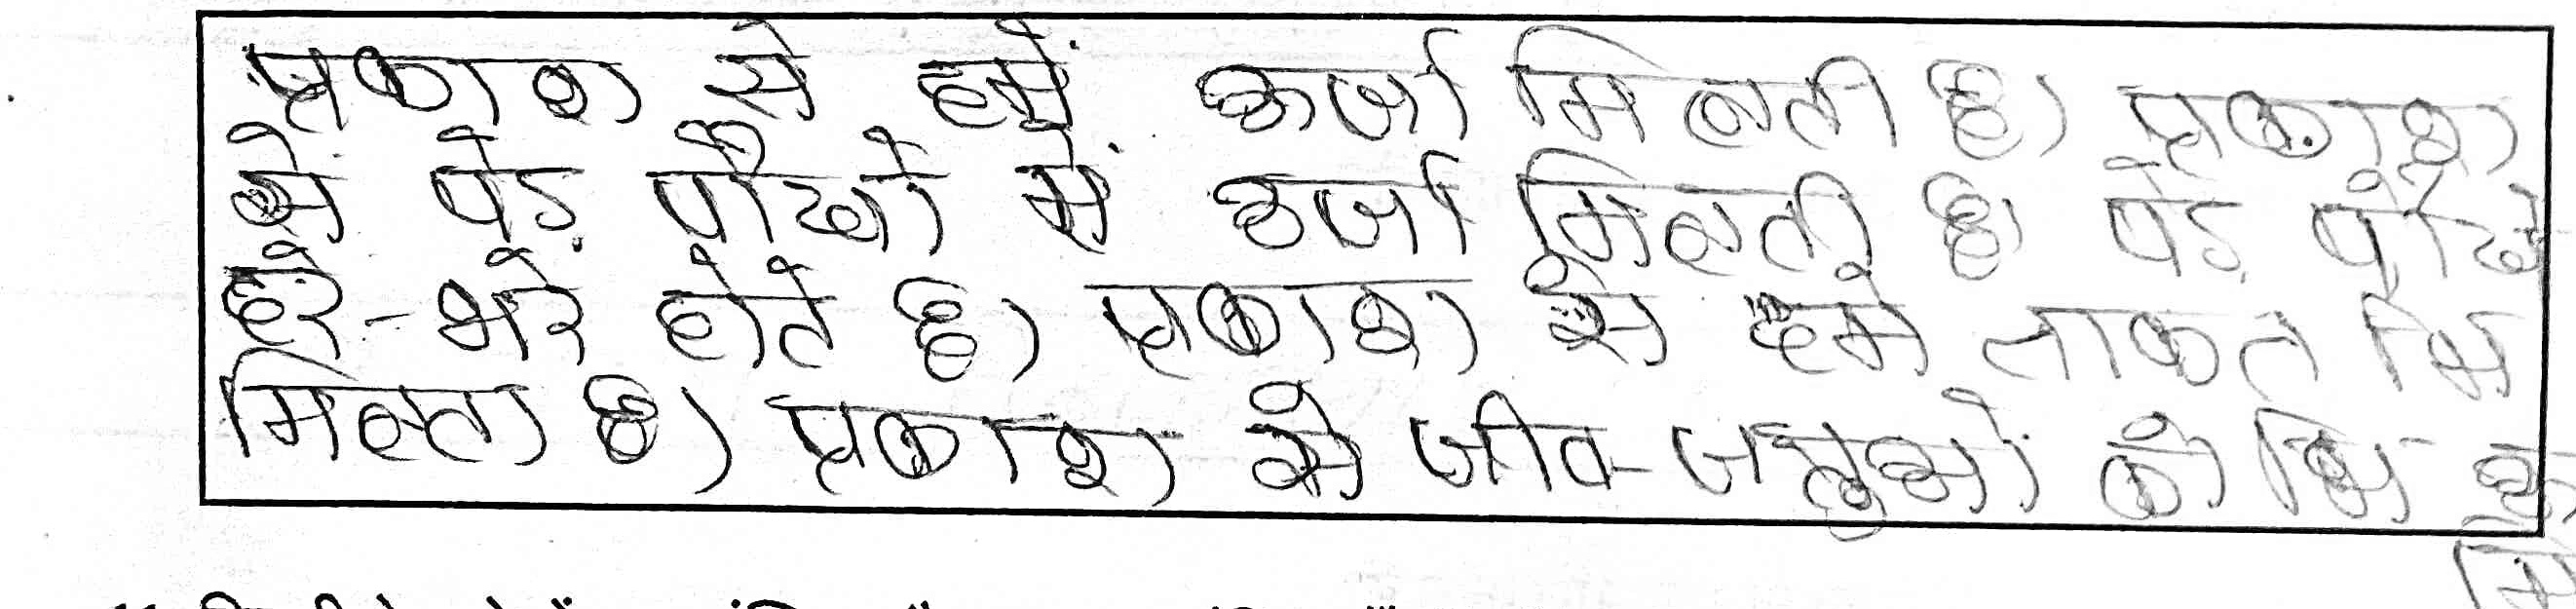 प्रकाश से हमें ऊर्जा मिलती है। प्रकाश
से पेड़ पौधों में ऊर्जा मिलती है। पेड़ पौधे
हरे-भरे होते है। प्रकाश से हमे ताकत भि
मिलता है। प्रकाश से जीव-जन्तुओं को भि